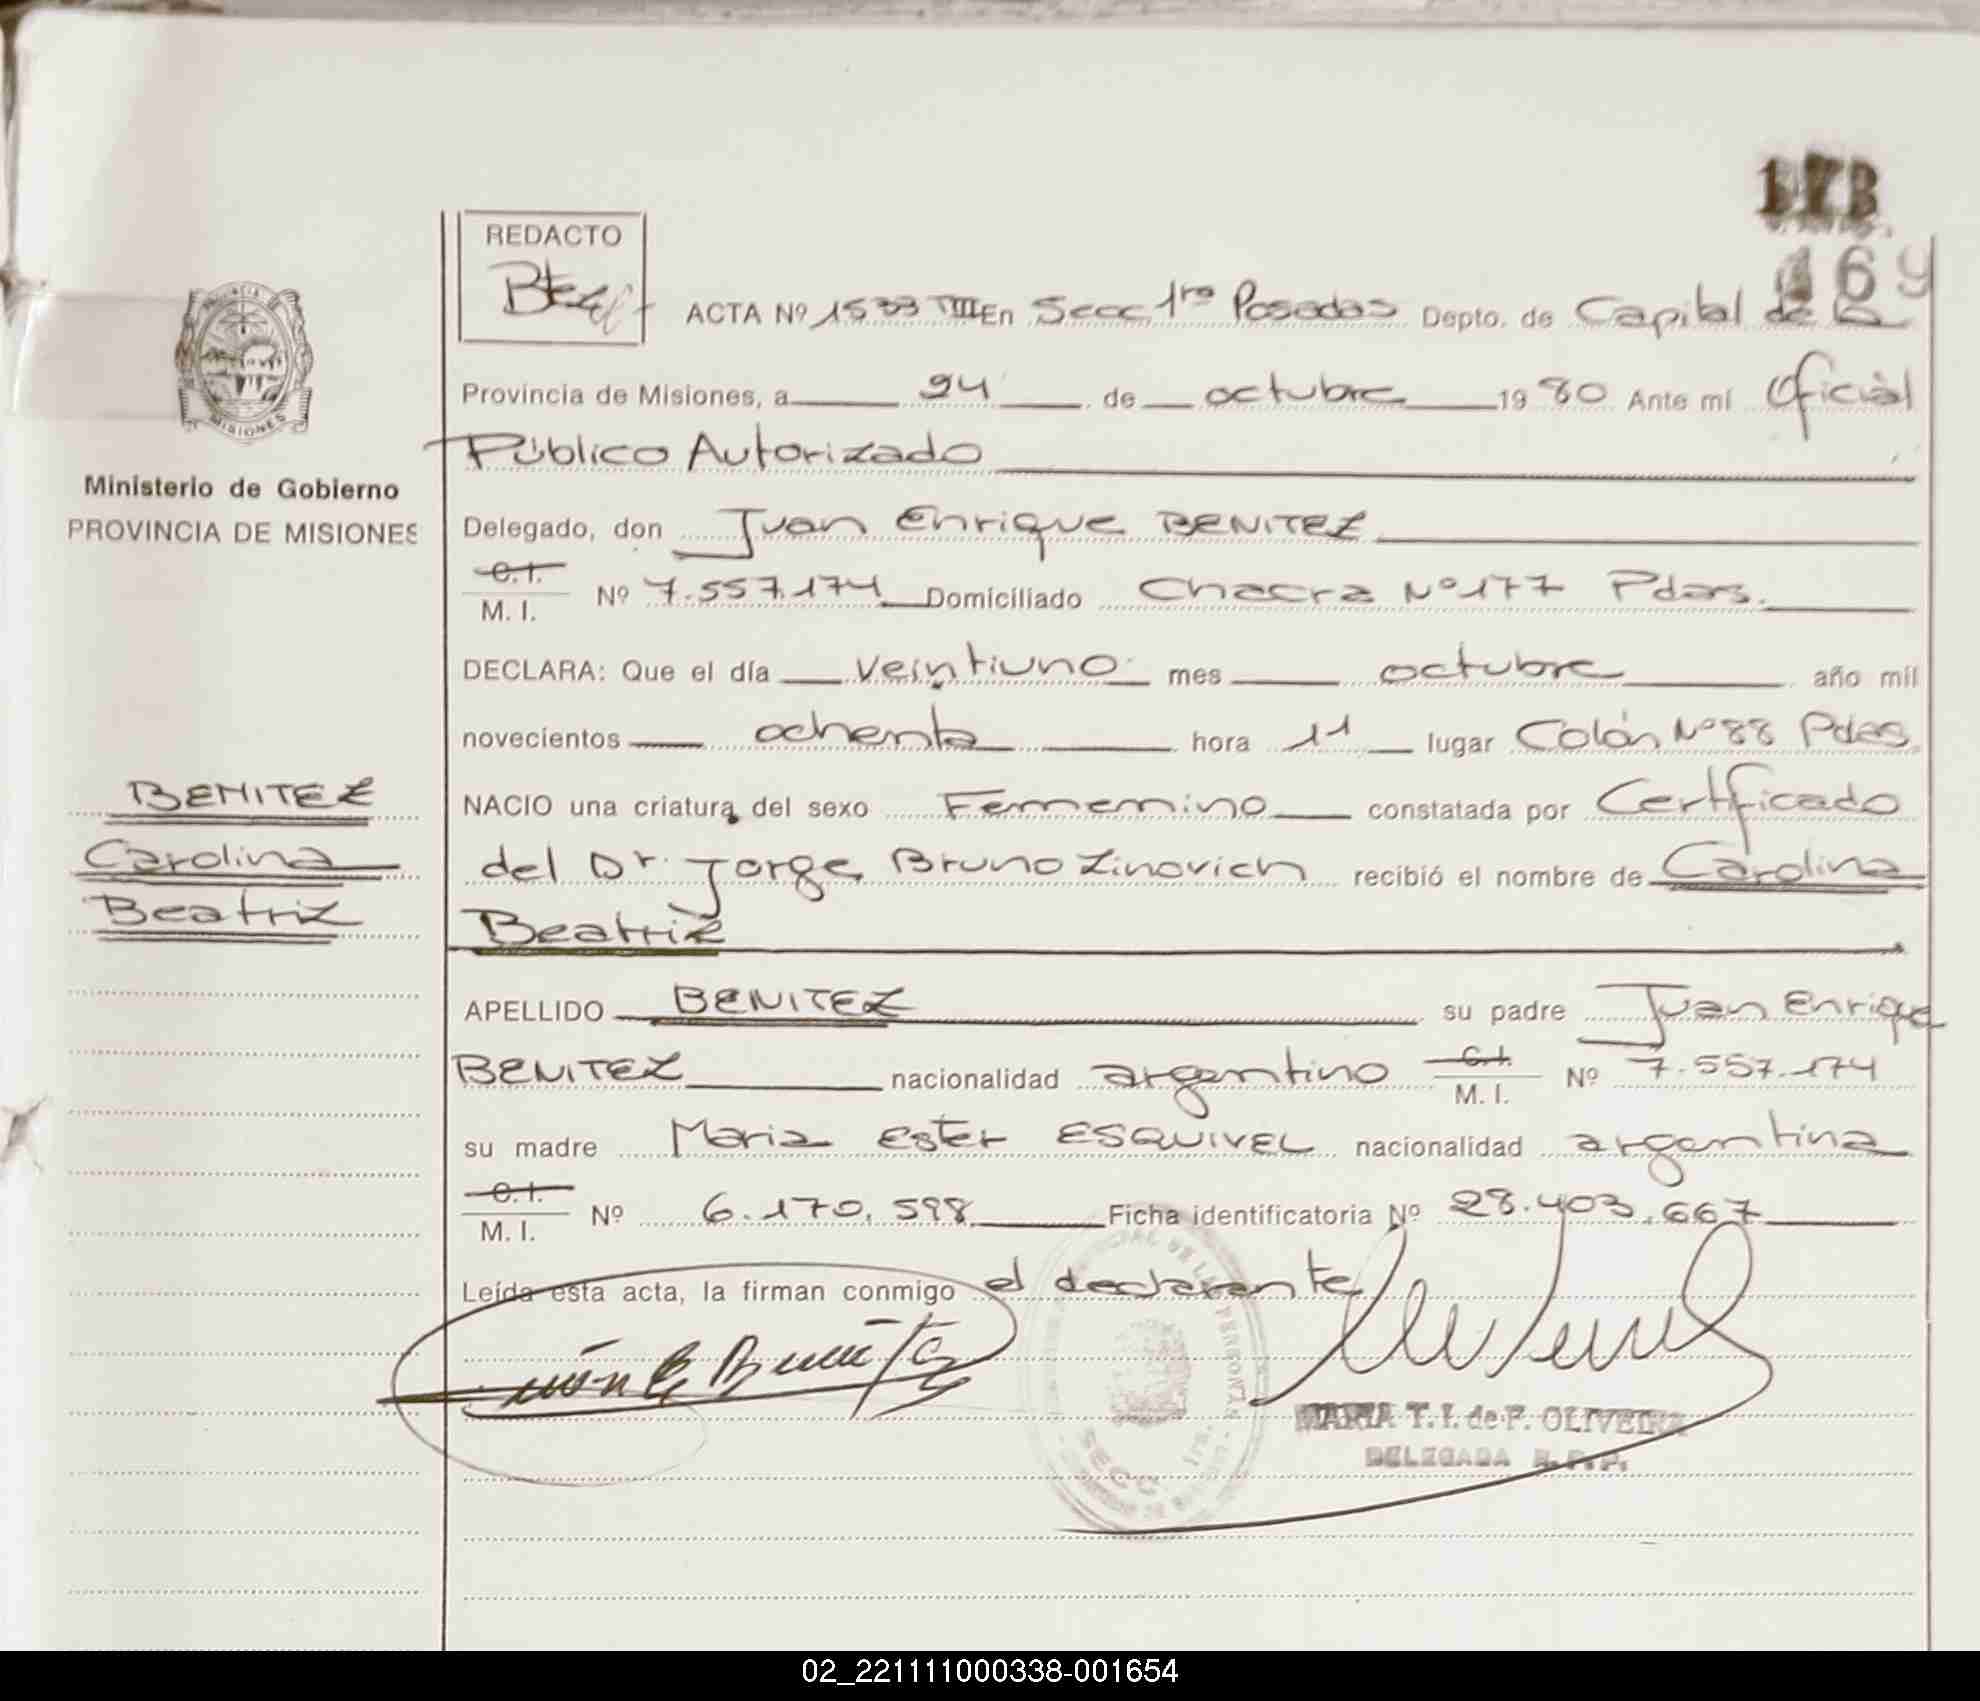 169
REDACTO
ACTA Nº 1533 TIII En Secc. 1ra Posadas Depto. de Capital de la
Provincia de Misiones, a 24 de octubre 1980 Ante mí Oficial
Público Autorizado
Ministerio de Gobierno
PROVINCIA DE MISIONES
Delegado, don Juan Enrique BENITEZ
C.I.
M. I. Nº 7.557.174 Domiciliado Chacra Nº 177 Pdas.
DECLARA: Que el día veintiuno mes octubre año mil
novecientos ochenta hora 11 lugar Colón Nº 88 Pdas.
BENITEZ
Carolina
Beatriz
NACIO una criatura del sexo Femenino constatada por Certificado
del Dr. Jorge Bruno Zinovich recibió el nombre de Carolina
Beatriz
APELLIDO BENITEZ su padre Juan Enrique
BENITEZ nacionalidad argentino C.I. M. I. Nº 7.557.174
su madre Maria Ester ESQUIVEL nacionalidad argentina
C.I.
M. I. Nº 6.170.598 Ficha identificatoria Nº 28.403.667
Leída esta acta, la firman conmigo el declarante
MARIA T. I. de F. OLIVEIRA
DELEGADA R. P. P.
SECC. 1ra.
02_221111000338-001654